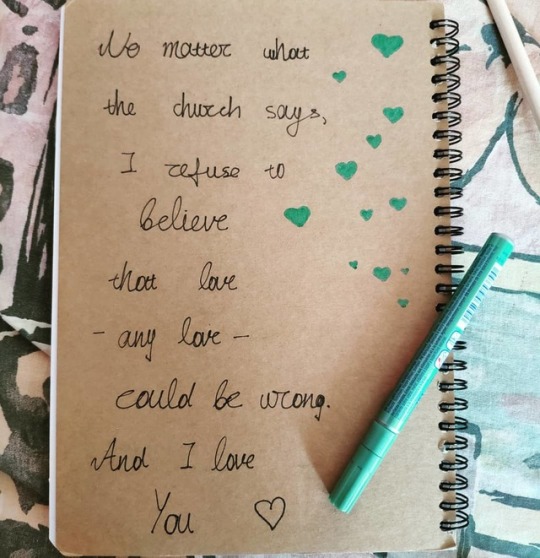 No matter what
the church says,
I refuse to
believe
that love
- any love -
could be wrong.
And I love
You ♡